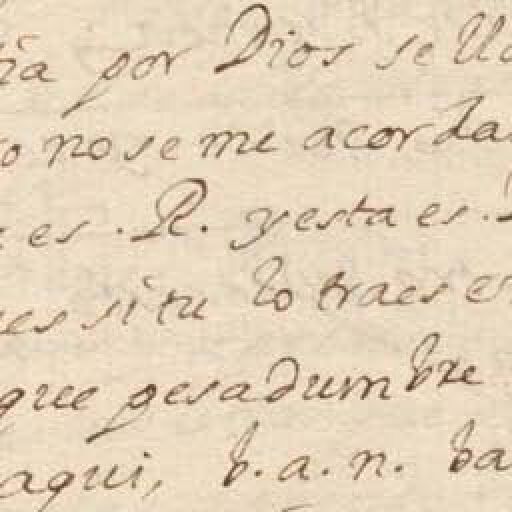 ia por Dios se
no se me acorda
es . R. yesta es .
es si tu lo traes
que pesadumbre
aqui, b. a. n. ba